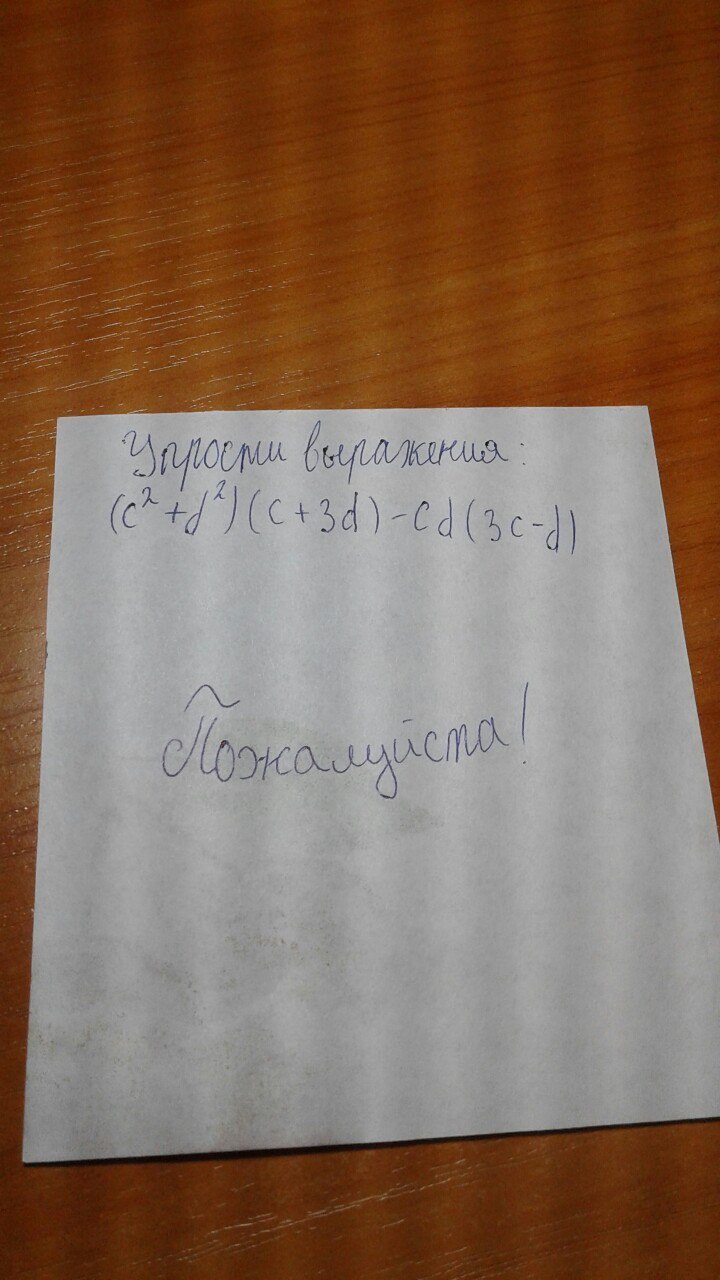 Упрости выражения:
(c² + d²)(c + 3d) - cd(3c - d)
Пожалуйста!